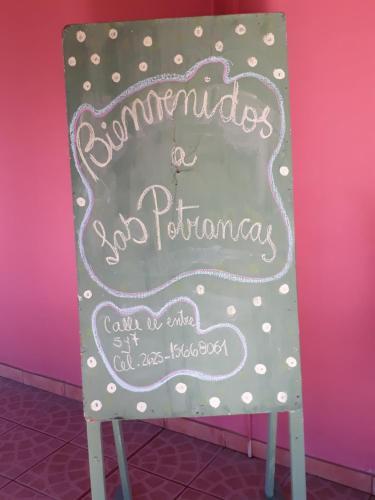 Bienvenidos
a
las Potrancas
Calle 11 entre
5 y 7
Cel. 2625-15668061